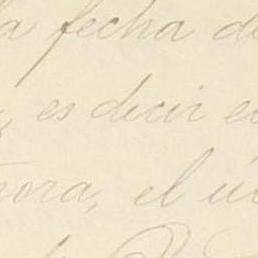 la fecha de
es decir e
ora, el ú